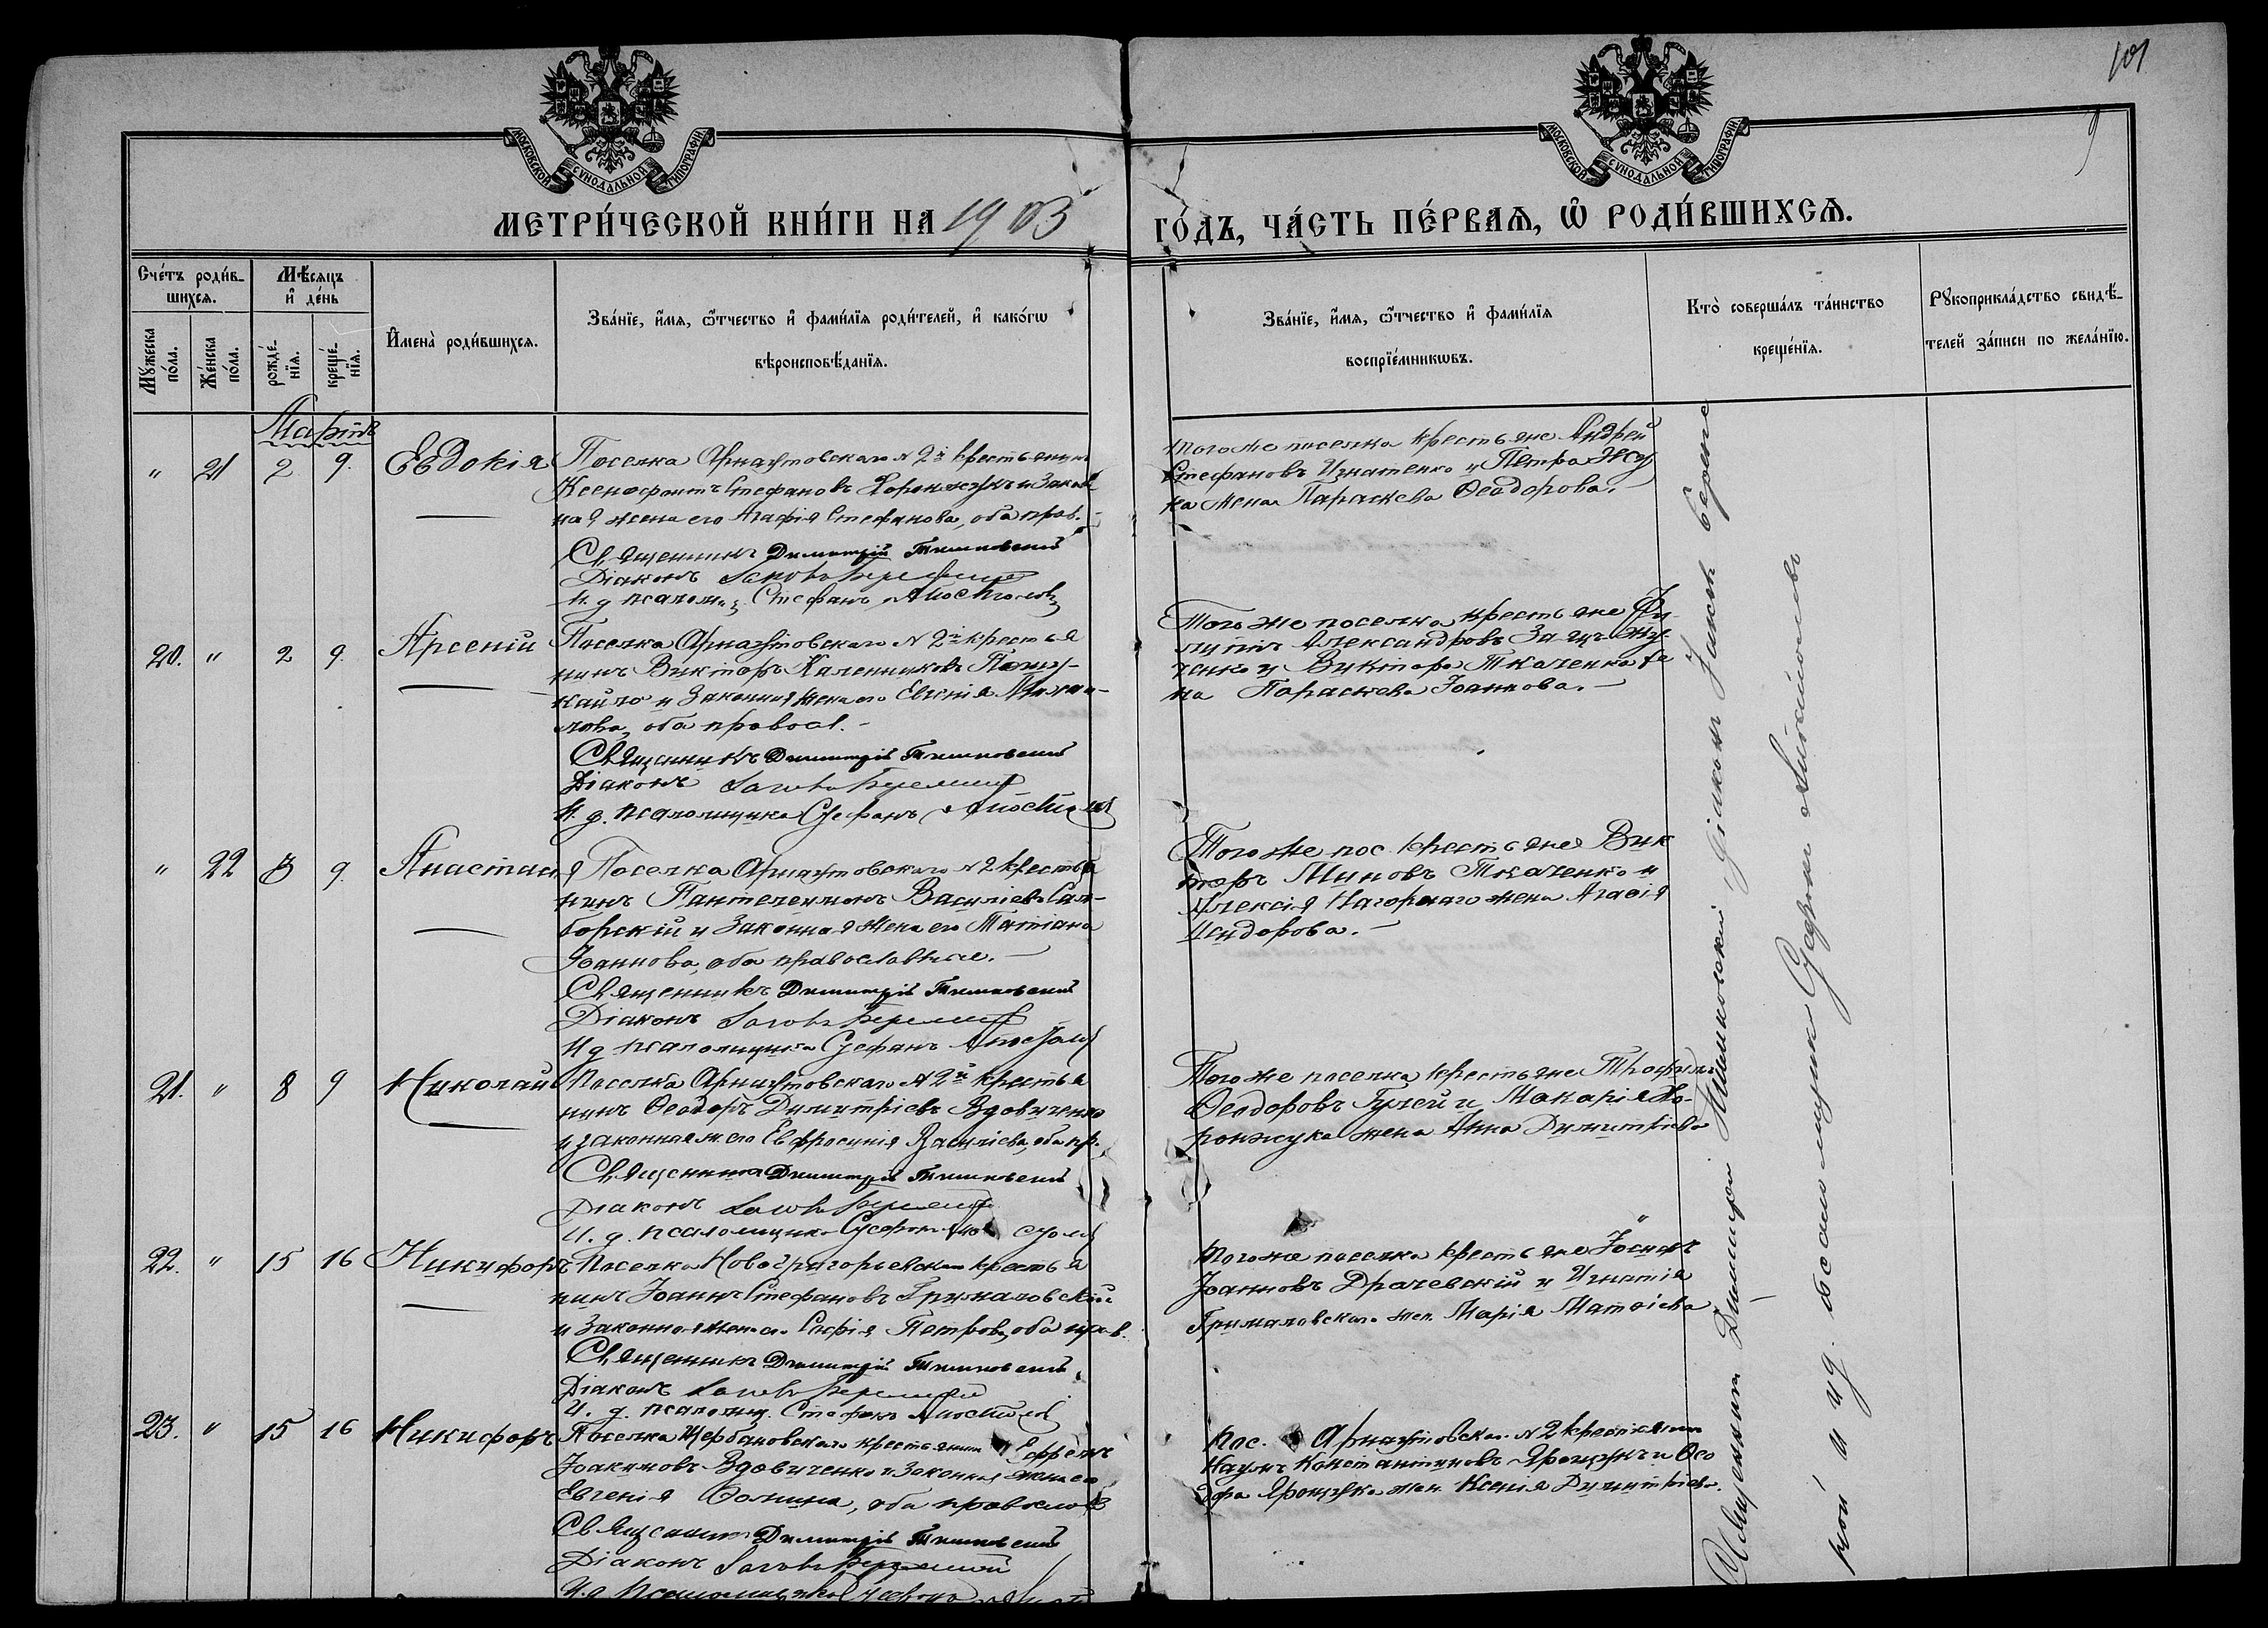 101
9
МОСКОВСКОЙ СѴНОДАЛЬНОЙ ТИПОГРАФІИ
МОСКОВСКОЙ СѴНОДАЛЬНОЙ ТИПОГРАФІИ
МЕТРИ́ЧЕСКОЙ КНИ́ГИ НА 1903 ГО́ДЪ, ЧА́СТЬ ПЕ́РВАѦ, Ѽ РОДИ́ВШИХСѦ.
Сче́тъ роди́в-
шихсѧ.
Мꙋ́жеска по́ла.
Же́нска по́ла.
Мѣ́сѧцъ
и҆ де́нь
рожде́-
нїѧ.
креще́-
нїѧ.
И҆мена̀ роди́вшихсѧ.
Зва́нїе, и҆́мѧ, ѻ҆́тчество и҆ фами́лїѧ роди́телей, и҆ како́гѡ
вѣроисповѣ́данїѧ.
Зва́нїе, и҆́мѧ, ѻ҆́тчество и҆ фами́лїѧ
воспрїе́мникѡвъ.
Кто̀ соверша́лъ та́инство
креще́нїѧ.
Рꙋкоприкла́дство свидѣ́-
телей за́писи по жела́нїю.
Мартъ
" 21 2 9. Евдокія
Поселка Арнаутовскаго N 2й крестьянинъ
Ксенофонтъ Стефановъ Хоронжукъ и закон
ная жена его Агафія Стефанова, оба прав.
Священникъ Димитрій Тишковскій
Діаконъ Іаковъ
И. д. псаломщ. Стефанъ Апостоловъ
Того же поселка крестьяне Андрей
Стефановъ Игнатенко и Петра
на жена Параскева Ѳеодорова.
20. " 2 9. Арсеній
Поселка Арнаутовскаго N 2й крестья
нинъ Викторъ Каленниковъ
и законная жена его Евгенія
лова, оба правосл.
Священникъ Димитрій Тишковскій
Діаконъ Іаковъ
И. д. псаломщика Стефанъ Апостоловъ
Того же поселка крестьяне Фи
липпъ Александровъ
ченко и Виктора Ткаченка же
на Параскева Іоаннова.
" 22 3 9. Анастасія
Поселка Арнаутовскаго N 2 крестья
нинъ Пантелеимонъ Василіевъ Сам-
борскій и законная жена его Татіана
Іоаннова, оба православные.
Священникъ Димитрій Тишковскій
Діаконъ Іаковъ
И д псаломщика Стефанъ Апостоловъ
Того же пос. крестьяне Вик
торъ Миновъ Ткаченко и
Алексія Нагорнаго жена Агафія
Исидорова.
21. " 8 9 Николай
Поселка Арнаутовскаго N 2й крестья
нинъ Ѳеодоръ Димитріевъ Вдовиченко
и законная ж. его Евфросинія Василіева, оба пр.
Священникъ Димитрій Тишковскій
Діаконъ Іаковъ
И. д. псаломщика Стефанъ Апостоловъ
Того же поселка крестьяне Трофимъ
Ѳеодоровъ Гулей и Макарія Хо-
ронжука жена Анна Димитріева
22. " 15 16 Никифоръ
Поселка Новогригорьевскаго крестья
нинъ Іоаннъ Стефановъ Грималовскій
и законная жена его Софія Петрова, оба прав.
Священникъ Димитрій Тишковскій
Діаконъ Іаковъ
И. д. псаломщ. Стефанъ Апостоловъ
Того же поселка крестьяне Іосифъ
Іоанновъ Драчевскій и Игнатія
Грималовскаго жен. Марія Матѳіева
23. " 15 16 Никифоръ
Поселка Щербановскаго крестьянинъ Ефремъ
Іоакимовъ Вдовиченко и законная жена его
Евгенія Ѳомина, оба правослов
Священникъ Димитрій Тишковскій
Діаконъ Іаковъ
И. д. псаломщика Стефанъ
Пос. Арнаутовскаго N 2 крестьянинъ
Наумъ Константиновъ Ярощукъ и Ѳео
дора Ярощука жен. Ксенія Димитріева.
Священникъ Димитрій Тишковскій Діаконъ Іаковъ
и и д. псаломщика Стефанъ Апостоловъ